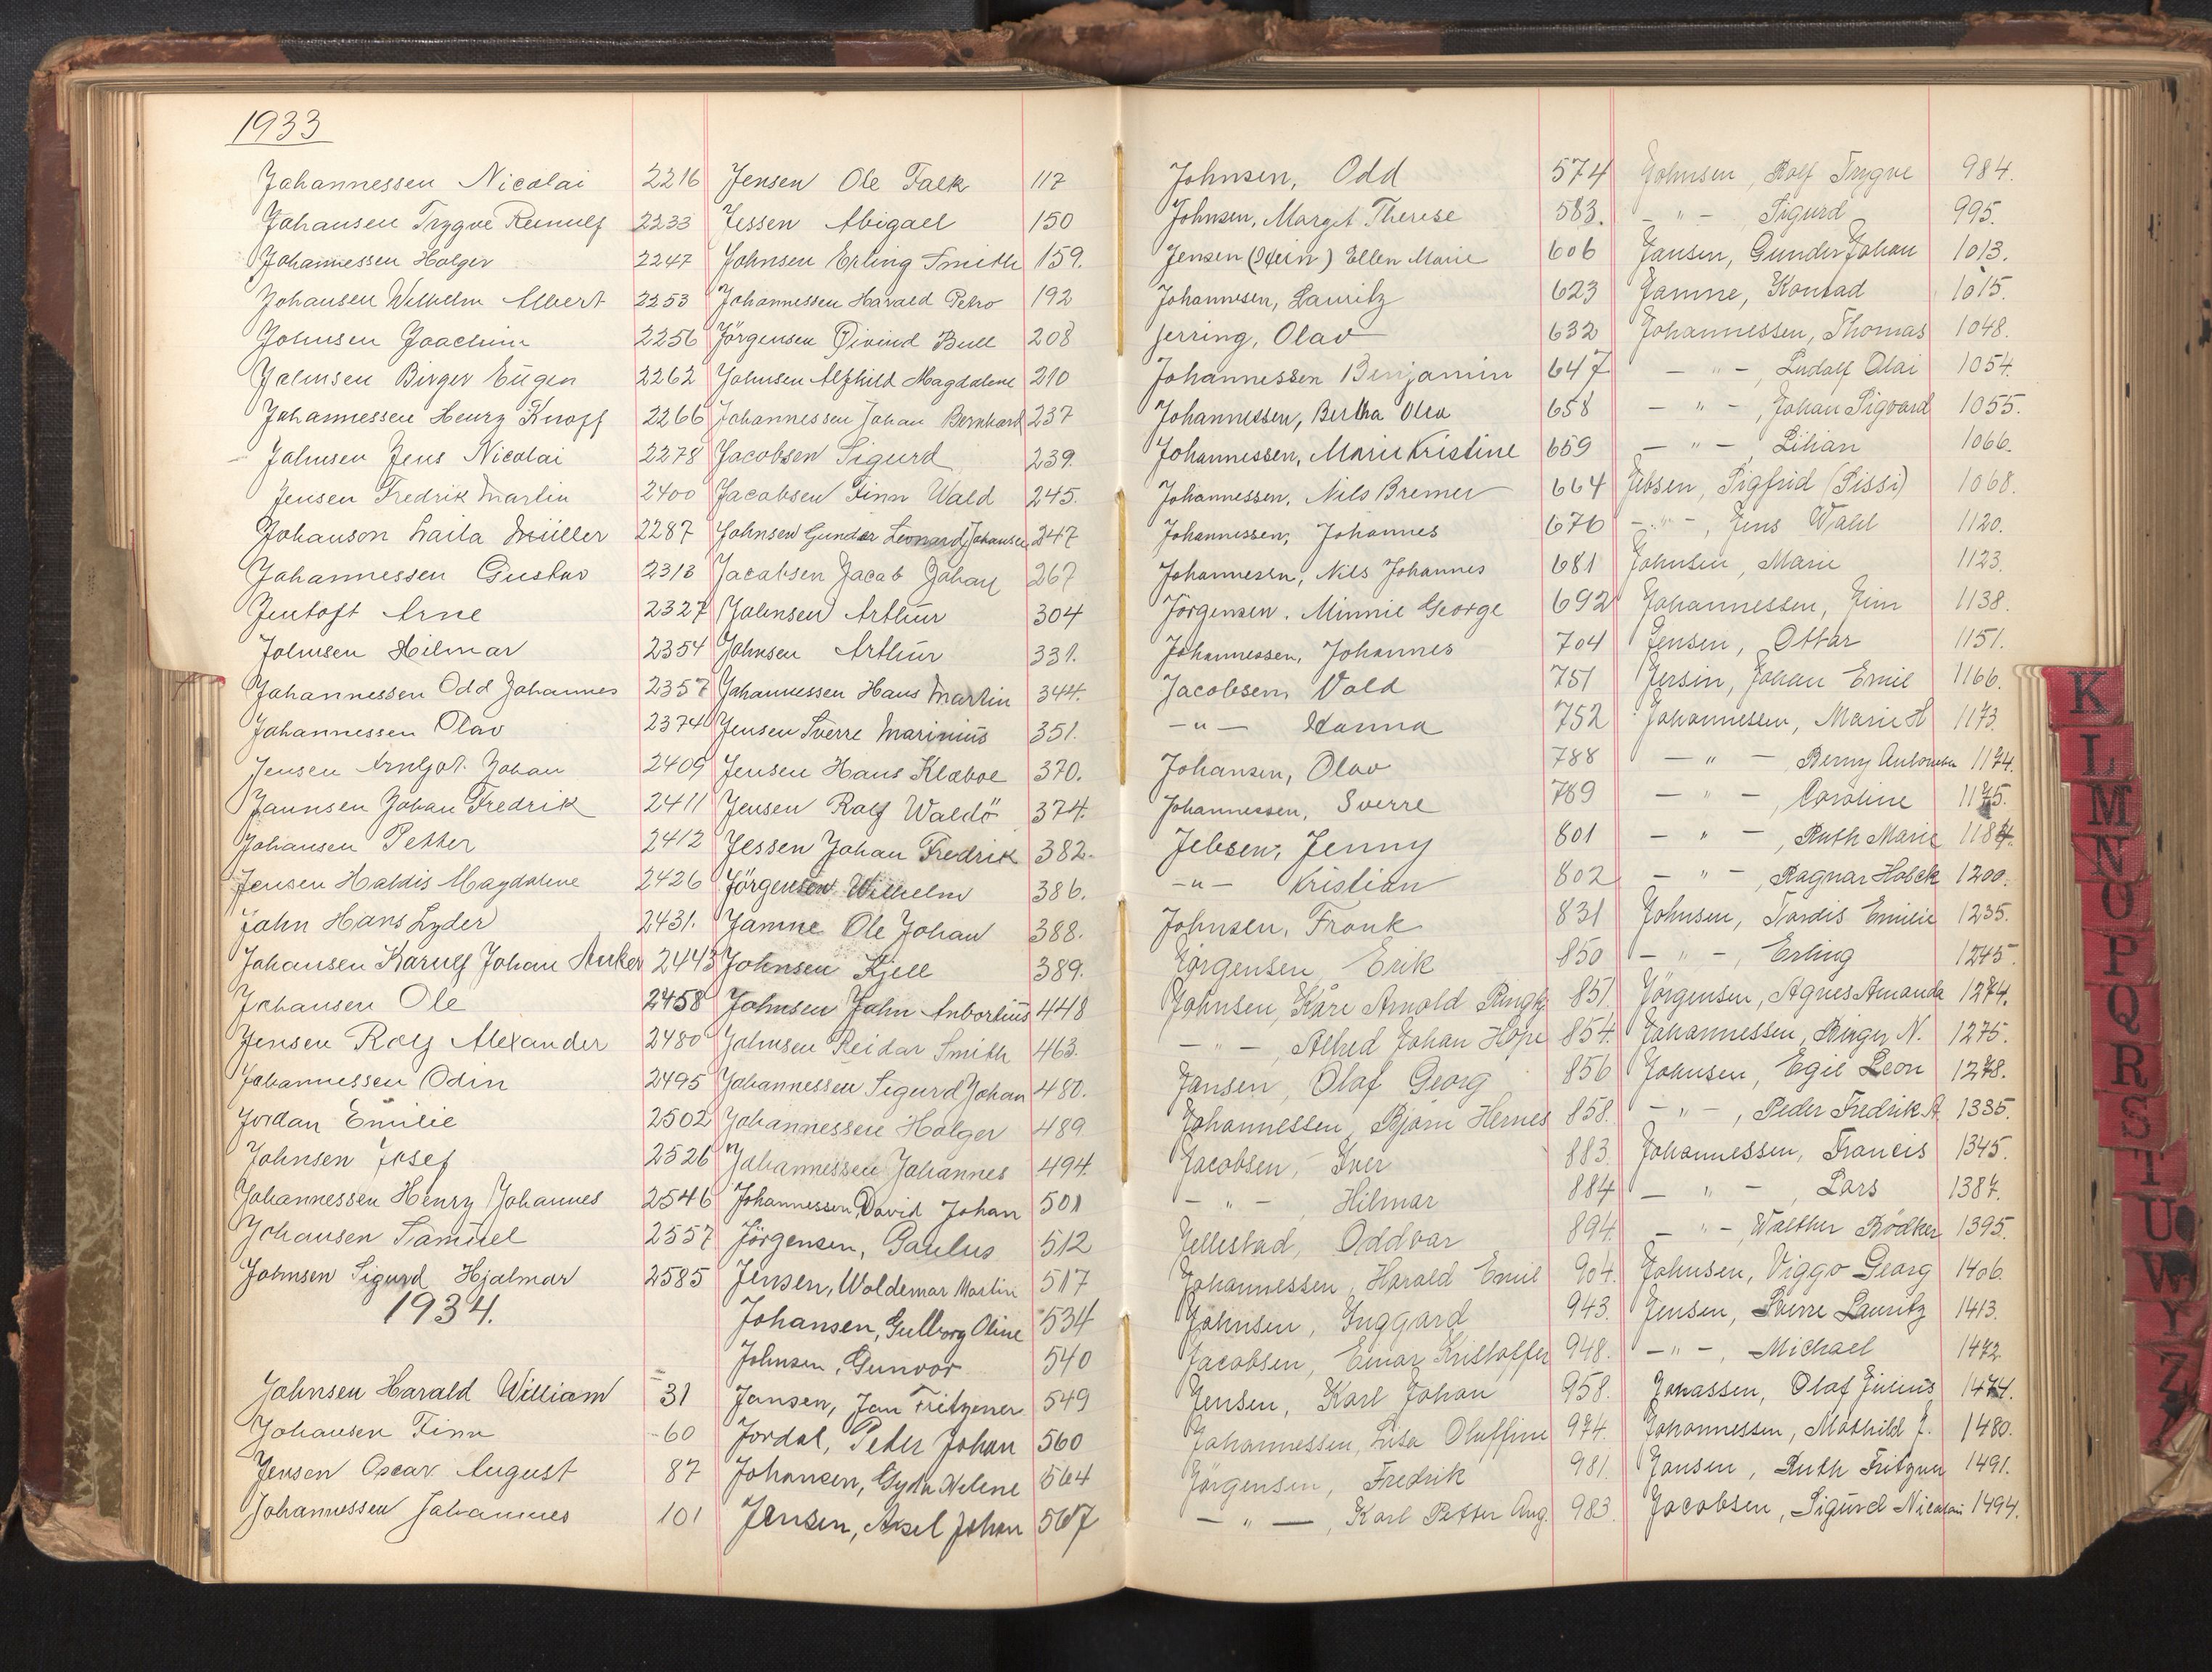 1933
Johannessen Nicolai 2216
Johansen Trygve Remulf 2233
Johannessen Holger 2247
Johansen Wilhelm Albert 2253
Johnsen Joachim 2256
Johnsen Birger Eugen 2262
Johannessen Henry Knoff 2266
Johnsen Jens Nicolai 2278
Jensen Fredrik Martin 2400
Johanson Laila Müller 2287
Johannessen Gustav 2313
Jentoft Arne 2327
Johnsen Hilmar 2354
Johannessen Odd Johannes 2357
Johannessen Olav 2374
Jensen Arnljot Johan 2409
Jannsen Johan Fredrik 2411
Johansen Petter 2412
Jensen Haldis Magdalene 2426
John Hans Lyder 2431.
Johansen Karulf Johan Anker 2443
Johansen Ole 2458
Jensen Rolf Alexander 2480
Johannessen Odin 2495
Jordan Emilie 2502
Johnsen Josef 2526
Johannessen Henry Johannes 2546
Johansen Samuel 2557
Johnsen Sigurd Hjalmar 2585
1934.
Johnsen Harald William 31
Johansen Finn 60
Jensen Oscar August 87
Johannessen Johannes 101
Jensen Ole Falk 117
Jessen Abigael 150
Johnsen Erling Smith 159.
Johannessen Harald Petro 192
Jörgensen Öivind Bull 208
Johnsen Alfhild Magdalene 210
Johannessen Johan Bernhard 237
Jacobsen Sigurd 239.
Jacobsen Finn Wald 245.
Johnsen Gunder Leonard Johansen 247
Jacobsen Jacob Johan 267
Johnsen Arthur 304
Johnsen Arthur 331.
Johannessen Hans Martin 344.
Jensen Sverre Marinius 351.
Jensen Hans Klaboe 370.
Jensen Rolf Waldö 374.
Jessen Johan Fredrik 382.
Jörgensen Wilhelm 386.
Jamne Ole Johan 388.
Johnsen Kjell 389.
Johnsen John Anbortius 448
Johnsen Reidar Smith 463.
Johannessen Sigurd Johan 480.
Johannessen Holger 489
Johannessen Johannes 494.
Johannessen, David Johan 501
Jörgensen, Paulus 512
Jensen, Woldemar Martin 517
Johansen, Gullborg Oline 534
Johnsen, Gunvor 540
Jansen, Jan Fritzener 549
Jordal, Peder Johan 560
Johansen, Gyda Helene 564
Jensen, Aksel Johan 567
Johnsen, Odd 574
Johnsen, Margit Therese 583.
Jensen (Stein) Ellen Marie 606
Johannesen, Lauritz 623
Jerring, Olav 632
Johannessen Benjamin 647
Johannessen, Bertha Olea 658
Johannessen, Marie Kristine 659
Johannessen, Nils Bremer 664
Johannessen, Johannes 676
Johannessen, Nils Johannes 681
Jörgensen. Minnie George 692
Johannessen, Johannes 704
Jacobsen, Vald 751
— " — Hanna 752
Johansen, Olav 788
Johannessen, Sverre 789
Jebsen, Jenny 801
— " — Kristian 802
Johnsen, Frank 831
Jörgensen Erik 850
Johnsen, Kåre Arnold 851.
— " —, Alfred Johan Hope 854.
Jansen, Olaf Georg 856
Johannessen, Bjarn Hernes 858.
Jacobsen, Iver 883.
— " —, Hilmar 884
Jellestad, Oddvar 894.
Johannessen, Harald Emil 904.
Johnsen, Inggard 943.
Jacobsen, Einar Kristoffer 948.
Jensen, Karl Johan 958.
Johannessen, Lisa Oluffine 974.
Jörgensen, Fredrik 981.
— " —, Karl Petter Aug. 983.
Johnsen, Rolf Trygve 984.
— " — Sigurd 995.
Jansen, Gunder Johan 1013.
Jamne, Konrad 1015.
Johannessen, Thomas 1048.
— " —, Ludolf Olai 1054.
— " —, Johan Sigvard 1055.
— " — Lilian 1066.
Jebsen, Sigfrid (Sissi) 1068.
— " —, Jens Wahl 1120.
Johnsen, Marie 1123.
Johannessen, Jim 1138.
Jensen, Ottar 1151.
Jersin, Johan Emil 1166.
Johannessen, Marie H 1173.
— " —, Berny 1174.
— " —, Caroline 1175.
— " —, Ruth Marie 1184.
— " —, Ragnar Holck 1200.
Johnsen, Tordis Emilie 1235.
— " —, Erling 1245.
Jörgensen, Agnes Amanda 1274.
Johannessen, Birger N. 1275.
Johnsen, Egil Leon 1278.
— " —, Peder Fredrik A. 1335.
Johannessen, Francis 1345.
— " —, Lars 1387.
— " — Walther Bödker 1395.
Johnsen, Viggo Georg 1406.
Jensen, Sverre Lauritz 1413.
— " —, Michael 1472
Jonassen, Olaf Julius 1474.
Johannessen, Mathild J. 1480.
Jansen, Ruth Fritzner 1491.
Jacobsen, Sigurd Nicolai 1494.
K
L
M
N
O
P
Q
R
S
T
U
W
Y
Z